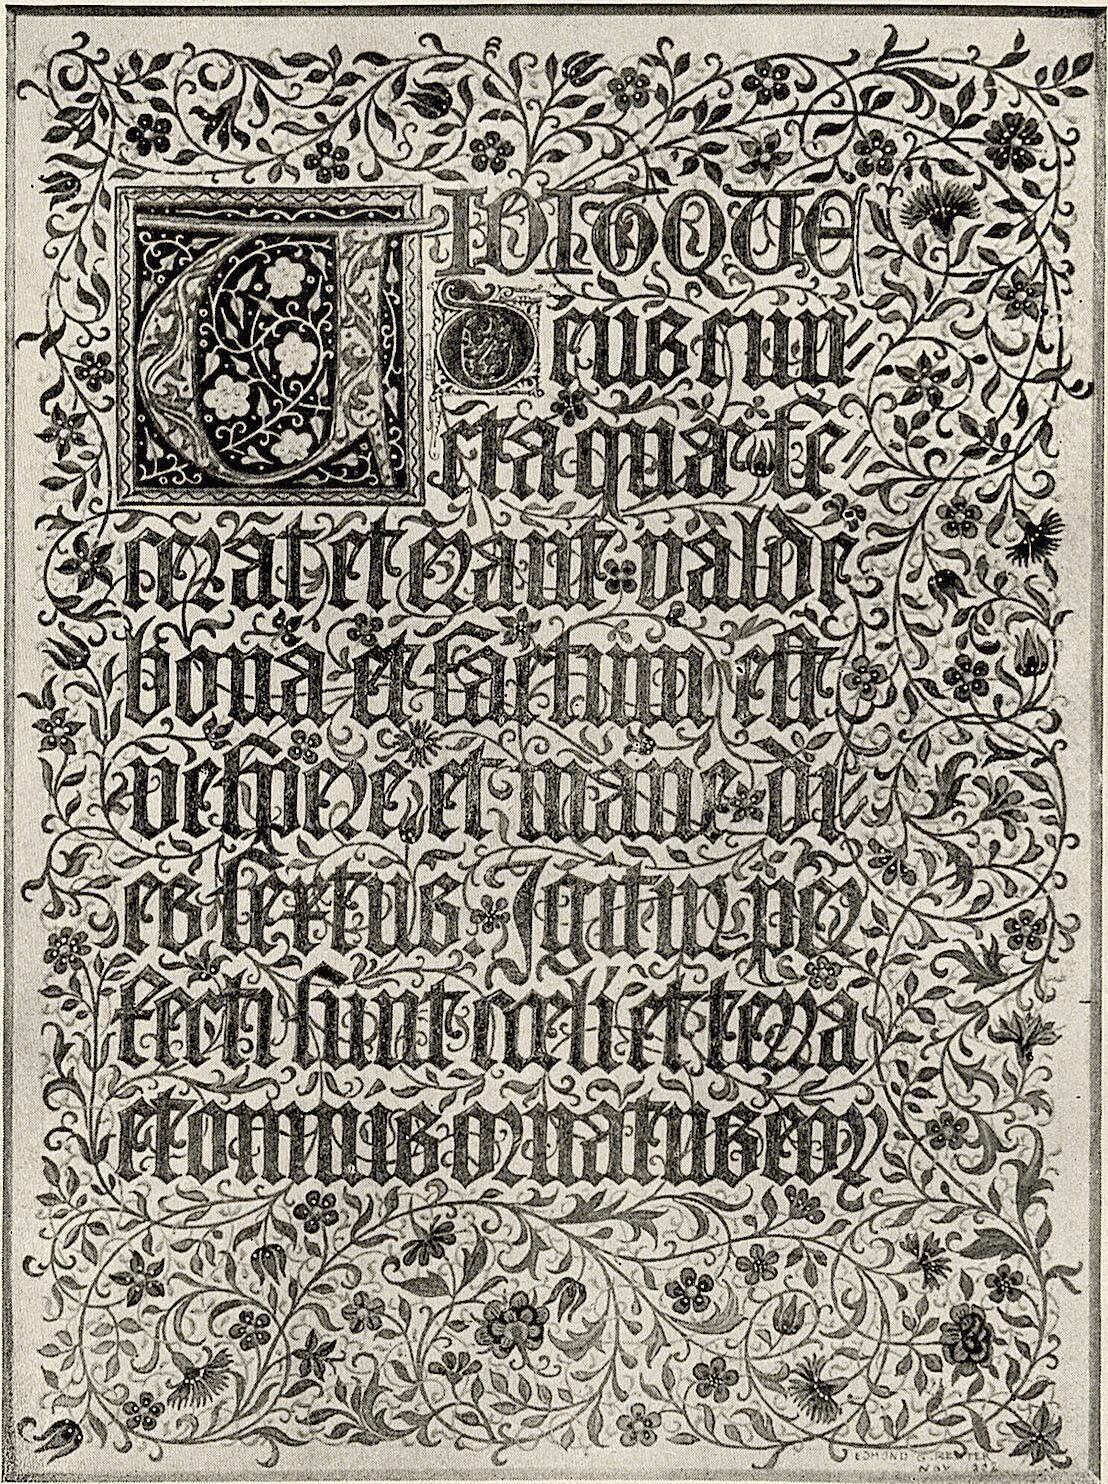 VIDITQUE
Deus cun//
cta quæ fe//
cerat et erant valde
bona et factum est
vespere et mane di
es sextus. Igitur per
fecti sunt cœli et terra
et omnis ornatus eoꝝ
EDMOND
NOV